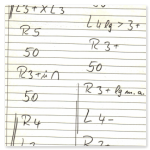 L3+XL3
R5
50
R3+in
50
R4
L4lg>3+
R3+
50
R3+lg m.a.
L4-